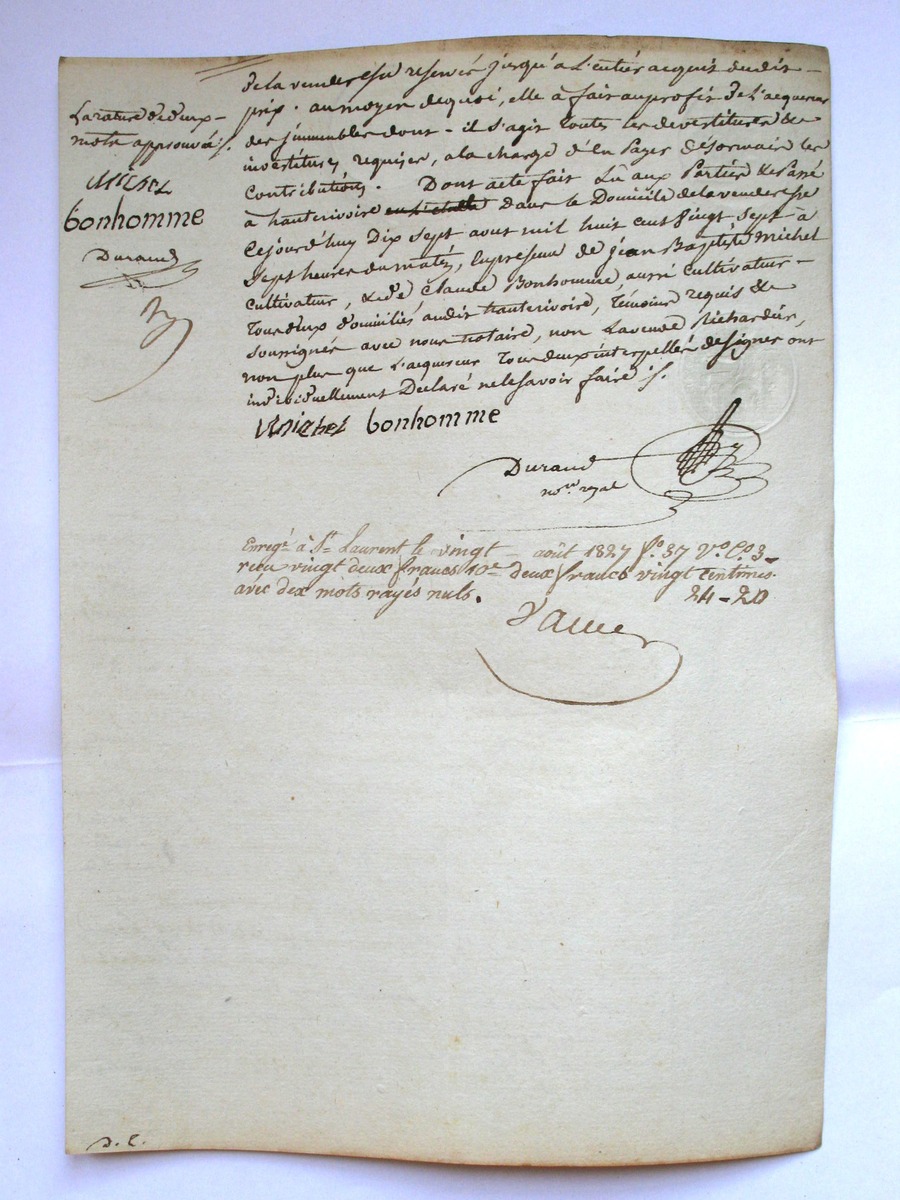 La rature de deux
mots approuvée ./.
Michel
bonhomme
Durand
de la venderesse reservé jusqu'à l'entier acquit dudit
prix. au moyen de quoi, elle à fait au profit de l'acquereur
des immeubles dont il s'agit toutes les devestitures &
investitures requises, a la charge d'en Payer désormais les
Contributions. Dont acte fait Lu aux Parties & Passé
à hauterivoire dans le Domicile de la venderesse
Cejourd'huy Dix Sept aout mil huit cent Vingt Sept à
Sept heures du matin, En presence de jean Baptiste Michel
Cultivateur, & de Claude Bonhomme, aussi Cultivateur
tous deux domiciliés audit hauterivoire, temoins requis &
soussignés avec nous notaire, non La vende Richardier,
non plus que L'acquereur tous deux interpellés de signer ont
individuellement Declaré ne le savoir faire ./.
Michel bonhomme
Durand
no.re royal
Enregé à St. Laurent le vingt août 1827 f.o 37 V.o C.o 3
reçu vingt deux francs 10e deux francs vingt centimes
avec deux mots rayés nuls.
24-20
D. C.